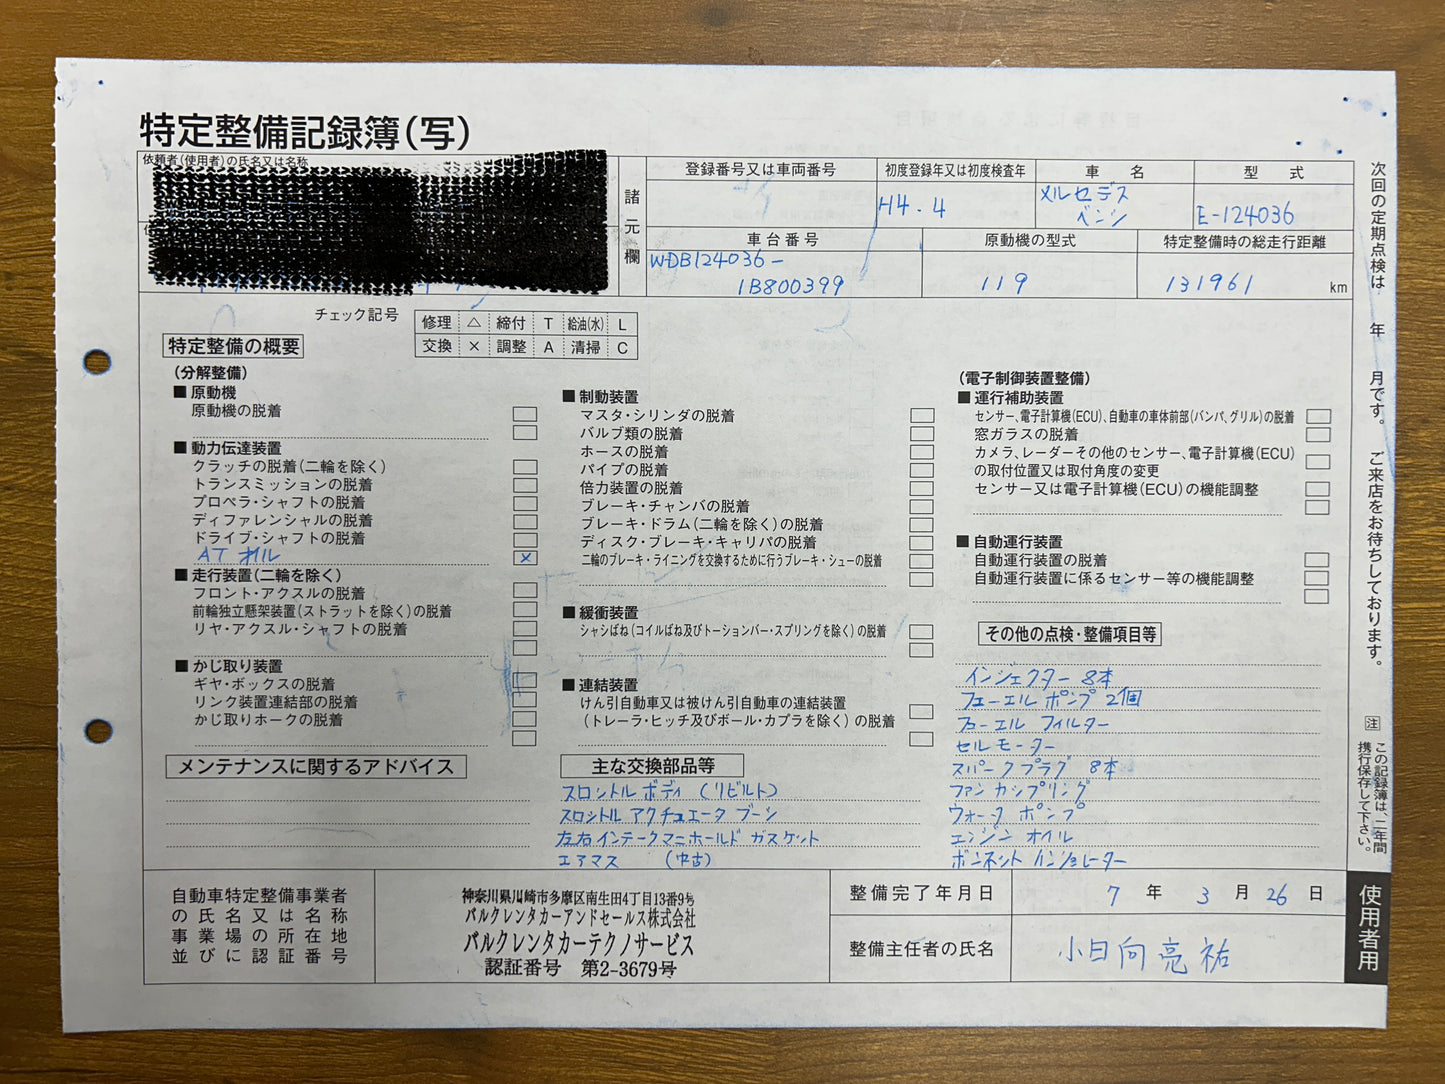 特定整備記録簿(写)
依頼者(使用者)の氏名又は名称
諸元欄
登録番号又は車両番号
初度登録年又は初度検査年
H4.4
車名
メルセデス
ベンツ
型式
E-124036
車台番号
WDB124036-
1B800399
原動機の型式
119
特定整備時の総走行距離
131961 km
チェック記号
修理 △ 締付 T 給油(水) L
交換 × 調整 A 清掃 C
特定整備の概要
(分解整備)
■ 原動機
原動機の脱着
■ 動力伝達装置
クラッチの脱着(二輪を除く)
トランスミッションの脱着
プロペラ・シャフトの脱着
ディファレンシャルの脱着
ドライブ・シャフトの脱着
AT オイル ×
■ 走行装置(二輪を除く)
フロント・アクスルの脱着
前輪独立懸架装置(ストラットを除く)の脱着
リヤ・アクスル・シャフトの脱着
■ かじ取り装置
ギヤ・ボックスの脱着
リンク装置連結部の脱着
かじ取りホークの脱着
■ 制動装置
マスタ・シリンダの脱着
バルブ類の脱着
ホースの脱着
パイプの脱着
倍力装置の脱着
ブレーキ・チャンバの脱着
ブレーキ・ドラム(二輪を除く)の脱着
ディスク・ブレーキ・キャリパの脱着
二輪のブレーキ・ライニングを交換するために行うブレーキ・シューの脱着
■ 緩衝装置
シャシばね(コイルばね及びトーションバー・スプリングを除く)の脱着
■ 連結装置
けん引自動車又は被けん引自動車の連結装置
(トレーラ・ヒッチ及びボール・カプラを除く)の脱着
(電子制御装置整備)
■ 運行補助装置
センサー、電子計算機(ECU)、自動車の車体前部(バンパ、グリル)の脱着
窓ガラスの脱着
カメラ、レーダーその他のセンサー、電子計算機(ECU)
の取付位置又は取付角度の変更
センサー又は電子計算機(ECU)の機能調整
■ 自動運行装置
自動運行装置の脱着
自動運行装置に係るセンサー等の機能調整
その他の点検・整備項目等
インジェクター 8本
フューエル ポンプ 2個
フューエル フィルター
セルモーター
スパークプラグ 8本
ファン カップリング
ウォーター ポンプ
エンジン オイル
ボンネット インシュレーター
メンテナンスに関するアドバイス
主な交換部品等
スロットル ボディ (リビルト)
スロットル アクチュエータ ブーツ
左右インテークマニホールド ガスケット
エアマス (中古)
自動車特定整備事業者
の氏名又は名称
事業場の所在地
並びに認証番号
神奈川県川崎市多摩区南生田4丁目13番9号
バルクレンタカーアンドセールス株式会社
バルクレンタカーテクノサービス
認証番号 第2-3679号
整備完了年月日
7 年 3 月 26 日
整備主任者の氏名
小日向亮祐
次回の定期点検は 年 月です。ご来店をお待ちしております。
注 この記録簿は、二年間
携行保存して下さい。
使用者用